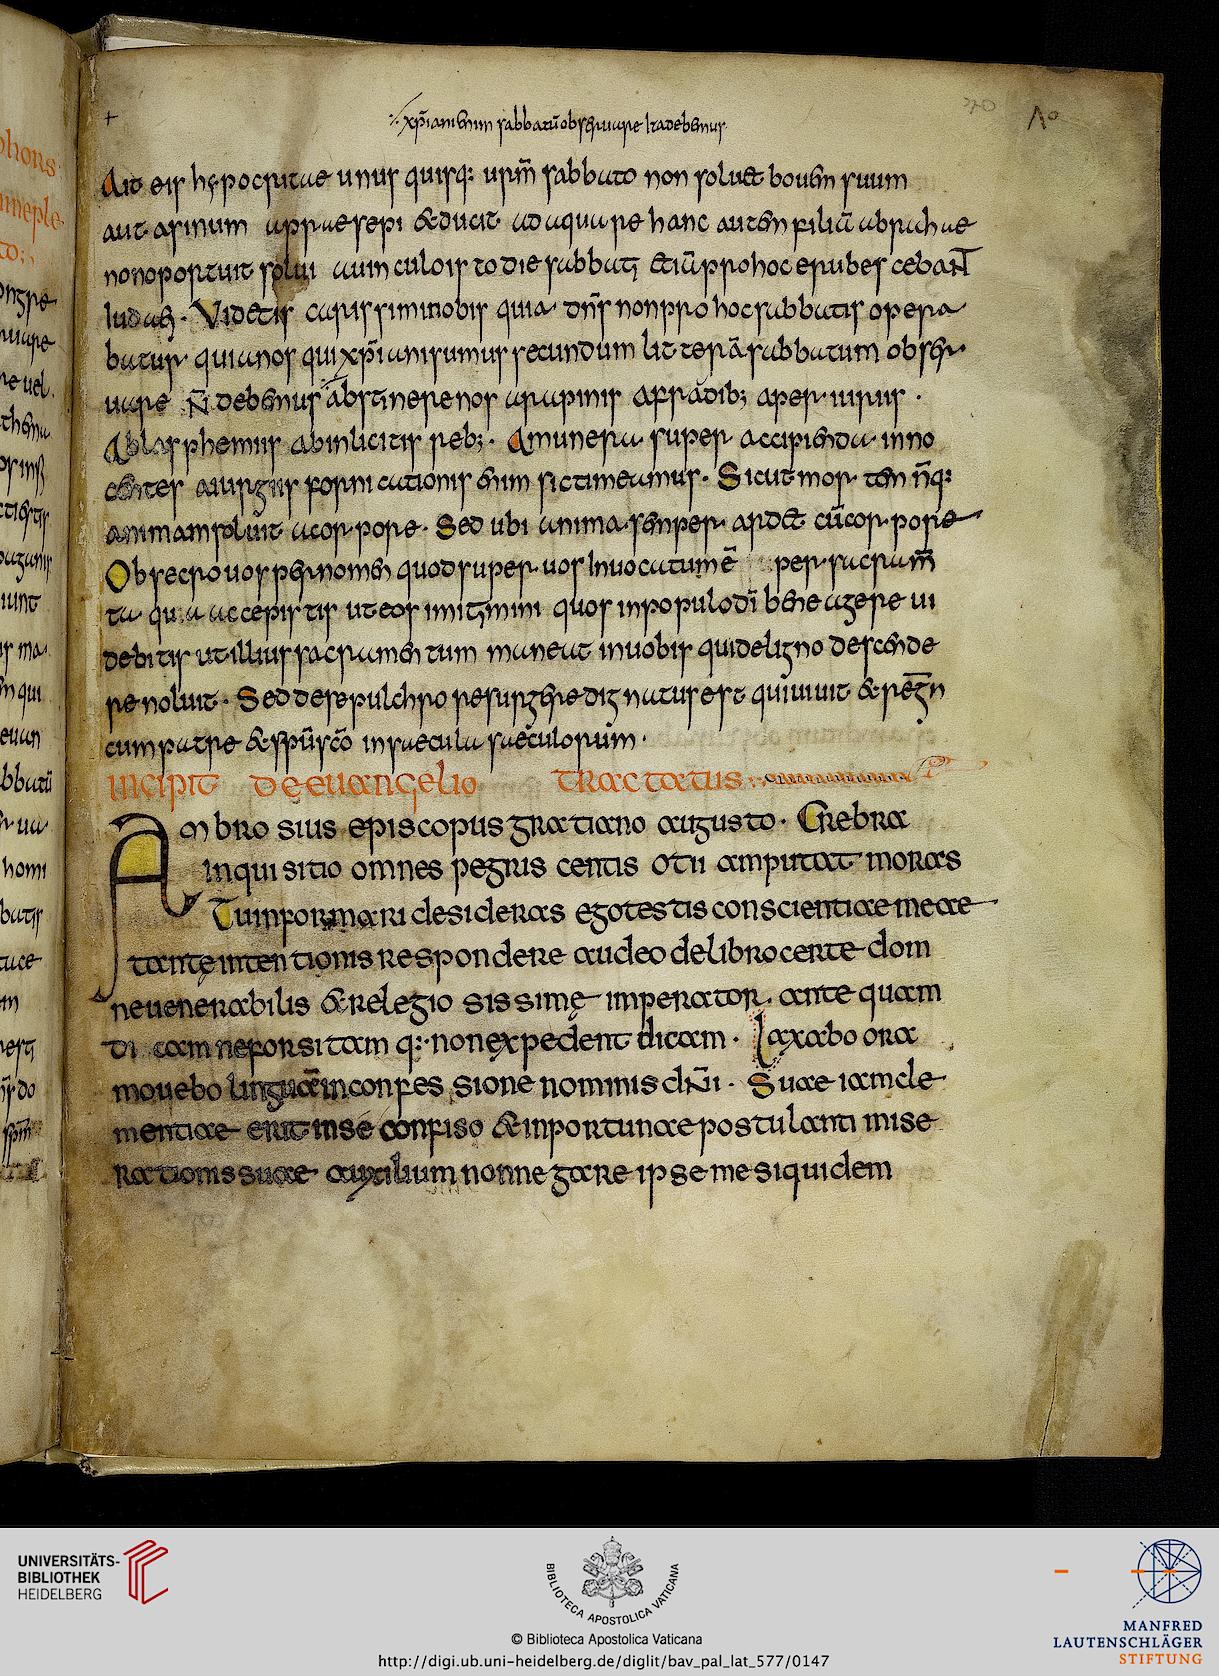 xp̄ianienim sabbatū obseruare ita debemus
Ait eis hypocritae unus quisq: ur̄m sabbato non soluet bouem suum
aut asinum appraesepi & ducit adaquare hanc autem filiā abrahae
nonoportuit solui a uinculois to die sabbati; Etiū pro hoc erubes cebant
ludaei. Videtis carissimi nobis quia dn̄s non pro hoc sabbatis opera
batur quia nos qui xp̄iani sumus secundum litterā sabbatum obser
uare n̄ debemus abstinere nos a rapinis afradib; aper iuriis.
Ablasphemiis abinlicitis reb;. Amunera super accipienda inno
centes aiurgiis fornicationis enim sic timeamus. Sicut mor tem n̄q:
animam soluit acorpore. Sed ubi anima semper ardet cū corpore
Obsecro uos per nomen quod super uos Inuocatum ē per sacram̄
ta qu a accepistis ut eos imitemini quos inpopulo dī bene agere ui
debitis ut illius sacramentum maneat inuobis qui de ligno descende
re noluit. Sed de sepulchro resurgere dignatus est qui uiuit & regn̄
cum patre & sp̄u sc̄o in saecula saeculorum.
incipit de euangelio tractatus
Ambrosius episcopus gratiano augusto. Crebra
inquisitio omnes pegris centis otii amputat moras
Tu informari desideras ego testis conscientiae meae
tantę intentionis respondere audeo de libro certe dom
ne uenerabilis & relegiosissimę imperator. ante quam
di cam ne forsitam q: non expedent dicam. laxabo ora
mouebo linguā in confes sione nominis dn̄i. Suae iam cle
mentiae erit in se confiso & inportunae postulanti mise
rationis suae auxilium non negare ipse me siquidem
UNIVERSITÄTS-
BIBLIOTHEK
HEIDELBERG
BIBLIOTECA APOSTOLICA VATICANA
© Biblioteca Apostolica Vaticana
http://digi.ub.uni-heidelberg.de/diglit/bav_pal_lat_577/0147
MANFRED
LAUTENSCHLÄGER
STIFTUNG